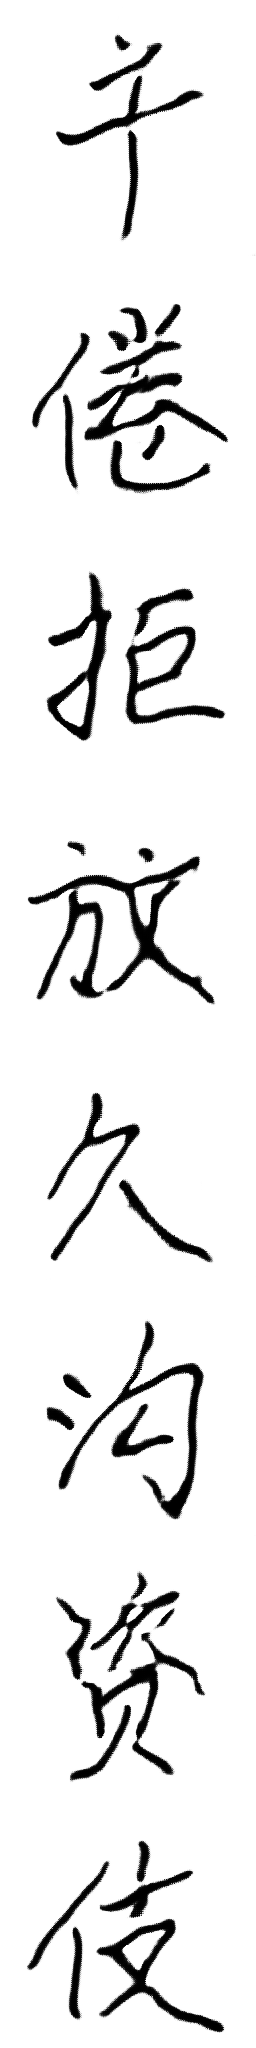 辛倦拒放久沟资伎